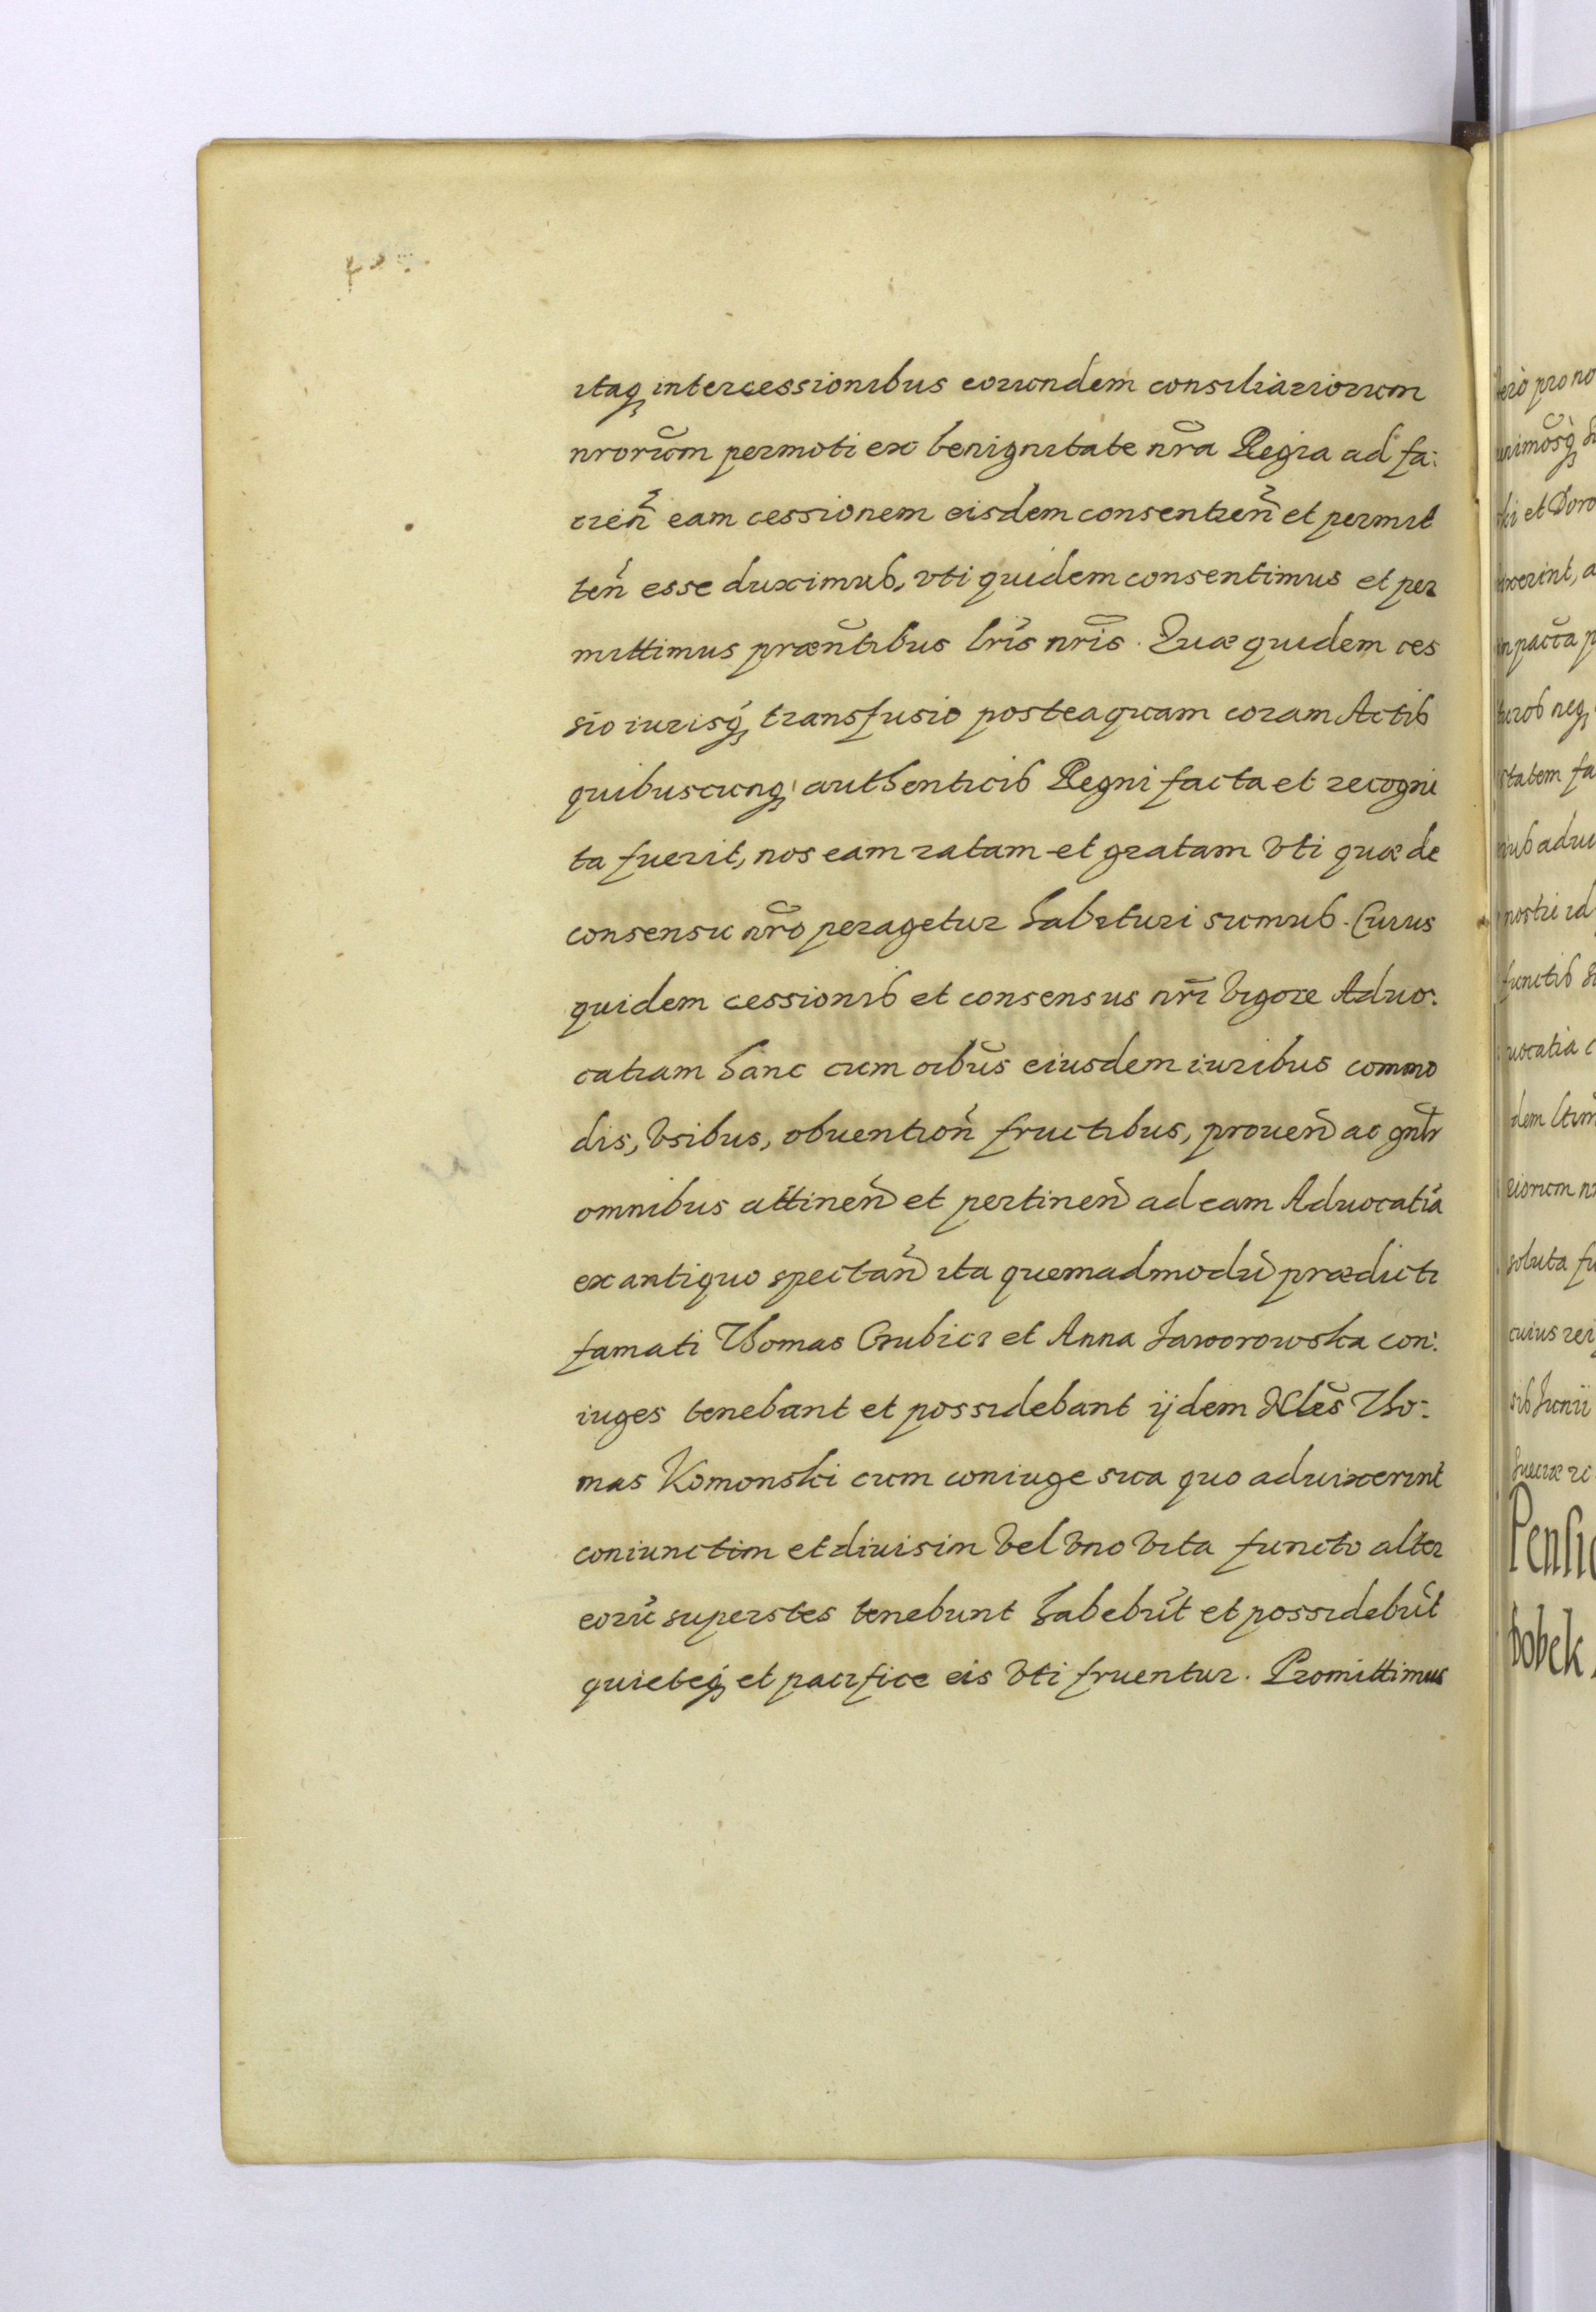 itaq₃ intercessionibus eorundem consiliariorum
nrorũm permoti ex benignitate nr̃a Regia ad fa:
cien̄ eam cessionem eisdem consentien̄ et permit
ten̄ esse duximus, vti quidem consentimus et per
mittimus præn̄tibus lr̃is nr̃is. Quæ quidem ces
sio iurisq₃ transfusio posteaquam coram Actis
quibuscunq₃ authenticis Regni facta et recogni
ta fuerit, nos eam ratam et gratam vti quæ de
consensu nr̃o peragetur habituri sumus. Cuius
quidem cessionis et consensus nr̃i vigore Aduo:
catiam hanc cum oib̃us eiusdem iuribus commo
dis, vsibus, obuention̄ fructibus, prouen̄ ac gn̄lr
omnibus attinen̄ et pertinen̄ ad eam Aduocatiã
ex antiquo spectan̄ ita quemadmodũ prædicti
famati Thomas Grubicz et Anna Jaworowska con:
iuges tenebant et possidebant ijdem Nb̃les Tho:
mas Komonski cum coniuge sua quo aduixerint
coniunctim et diuisim vel vno vita functo alter
eorũ superstes tenebunt habebũt et possidebũt
quieteq₃ et pacifice eis vti fruentur. Promittimus
ki et Doro
in pacta p
statem fa
nostri id
functis
uocatia c
soluta fu
cuius rei
Pensio
bobek